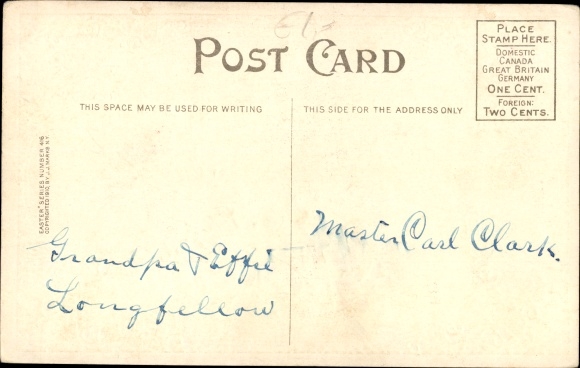 POST CARD
PLACE
STAMP HERE.
DOMESTIC
CANADA
GREAT BRITAIN
GERMANY
ONE CENT.
FOREIGN:
TWO CENTS.
THIS SPACE MAY BE USED FOR WRITING
THIS SIDE FOR THE ADDRESS ONLY
EASTER SERIES NUMBER 416
COPYRIGHTED 1910, BY J.J. MARKS N.Y.
Grandpa & Effie
Longfellow
Master Carl Clark.